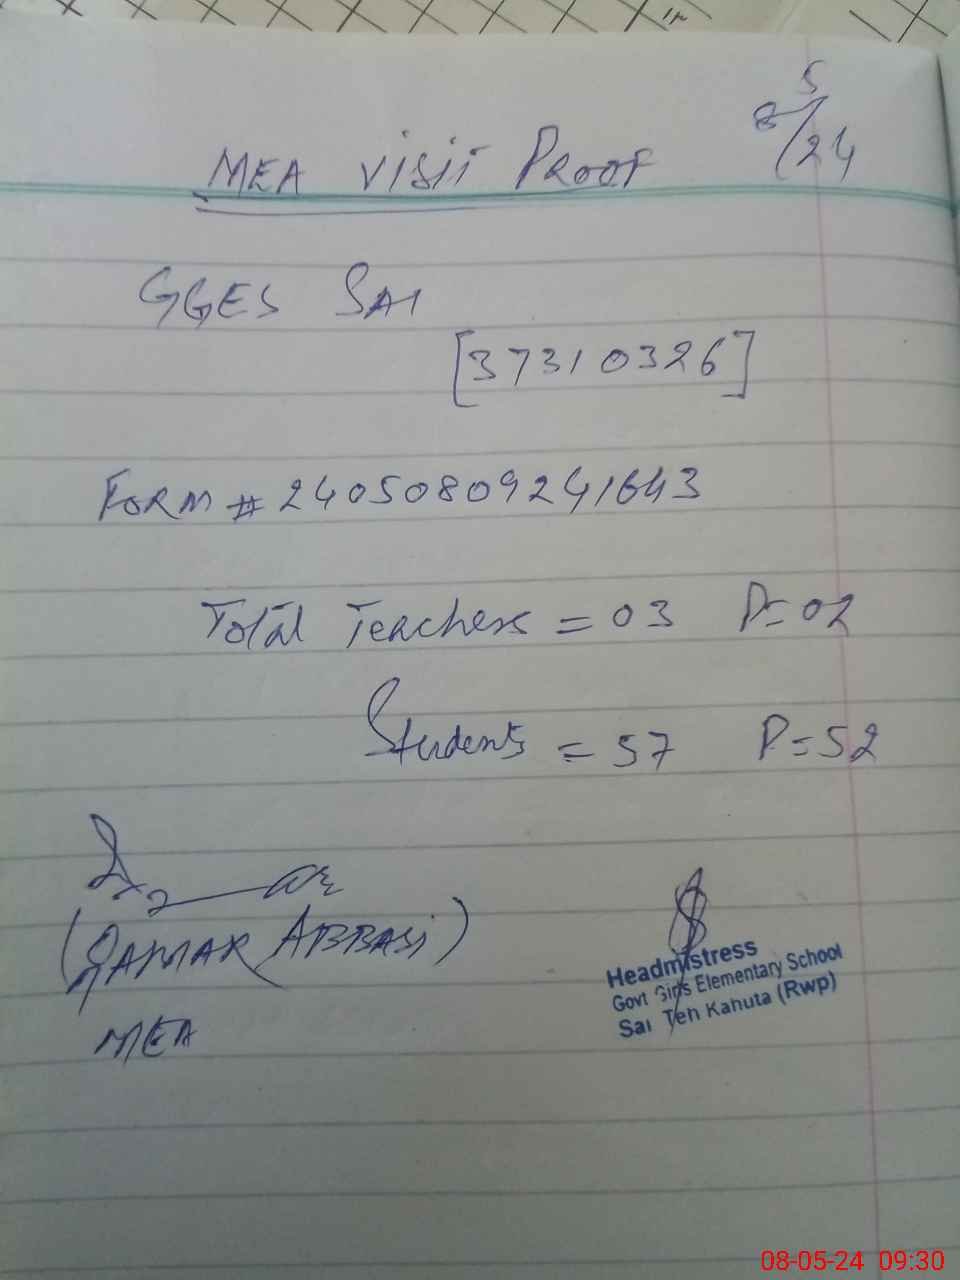 8/5/24
MEA VISIT PROOF
GGES SAI
[37310326]
FORM # 24050809241643
Total Teachers = 03 P=02
Students = 57 P=52
(QAMAR ABBASI)
MEA
Headmistress
Govt Girls Elementary School
Sai Teh Kahuta (Rwp)
08-05-24 09:30